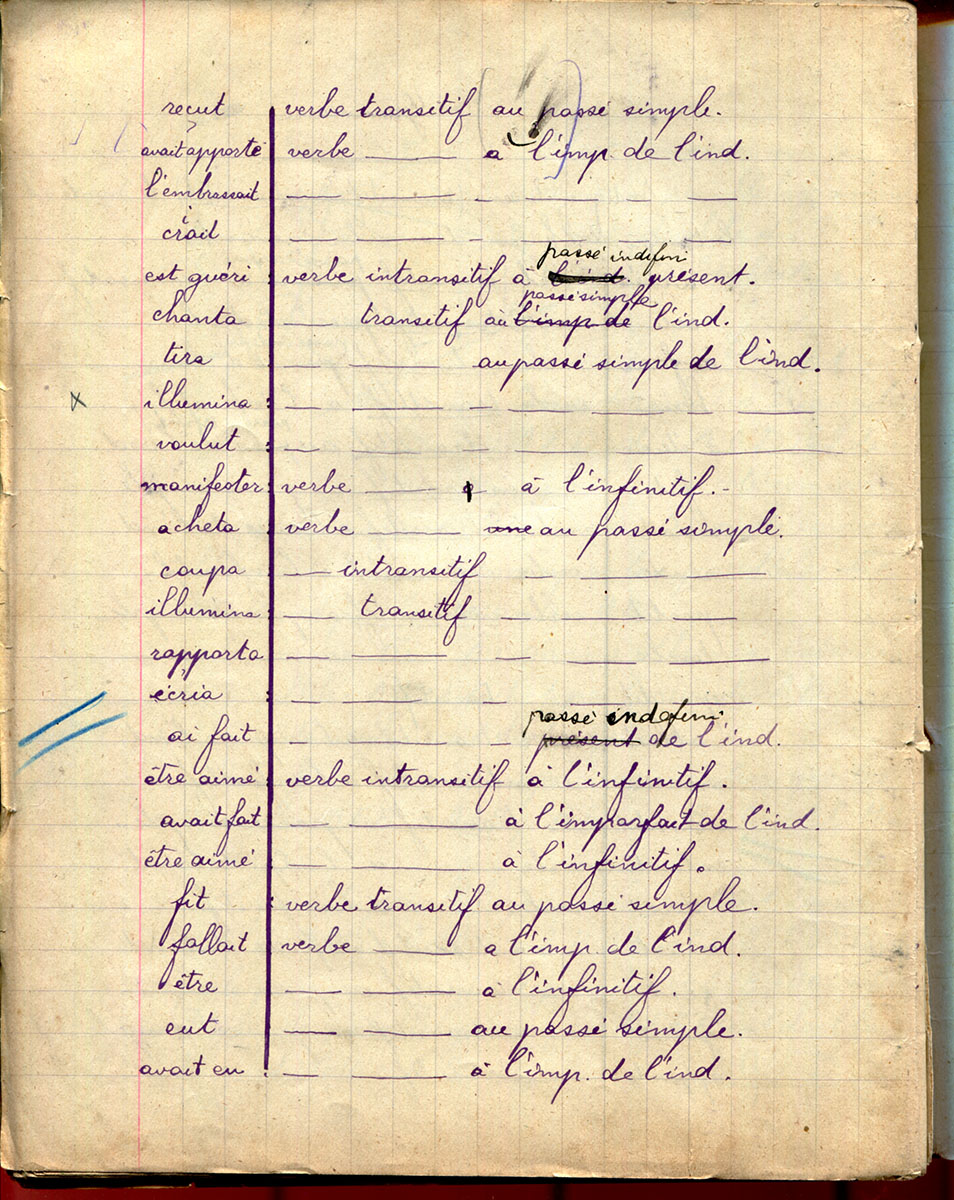 reçut verbe transitif au passé simple.
avait apporté verbe — à l'imp. de l'ind.
l'embrassait — — — — — —
criait — — — — — —
passé indéfini
est guéri : verbe intransitif à l'ind. présent.
passé simple
chanta — transitif au l'imp de l'ind.
tira — — au passé simple de l'ind.
illumina : — — — — — — —
voulut : — — — —
manifester : verbe — à l'infinitif.
acheta : verbe — une au passé simple.
coupa — intransitif — — —
illumina : — transitif — — —
rapporta — — — — —
écria : — — — — —
passé indéfini
ai fait — — — présent de l'ind.
être aimé : verbe intransitif à l'infinitif.
avait fait — — à l'imparfait de l'ind.
être aimé — — à l'infinitif.
fit : verbe transitif au passé simple.
fallait verbe — a l'imp. de l'ind.
être — — à l'infinitif.
eut — — au passé simple.
avait eu : — — à l'imp. de l'ind.